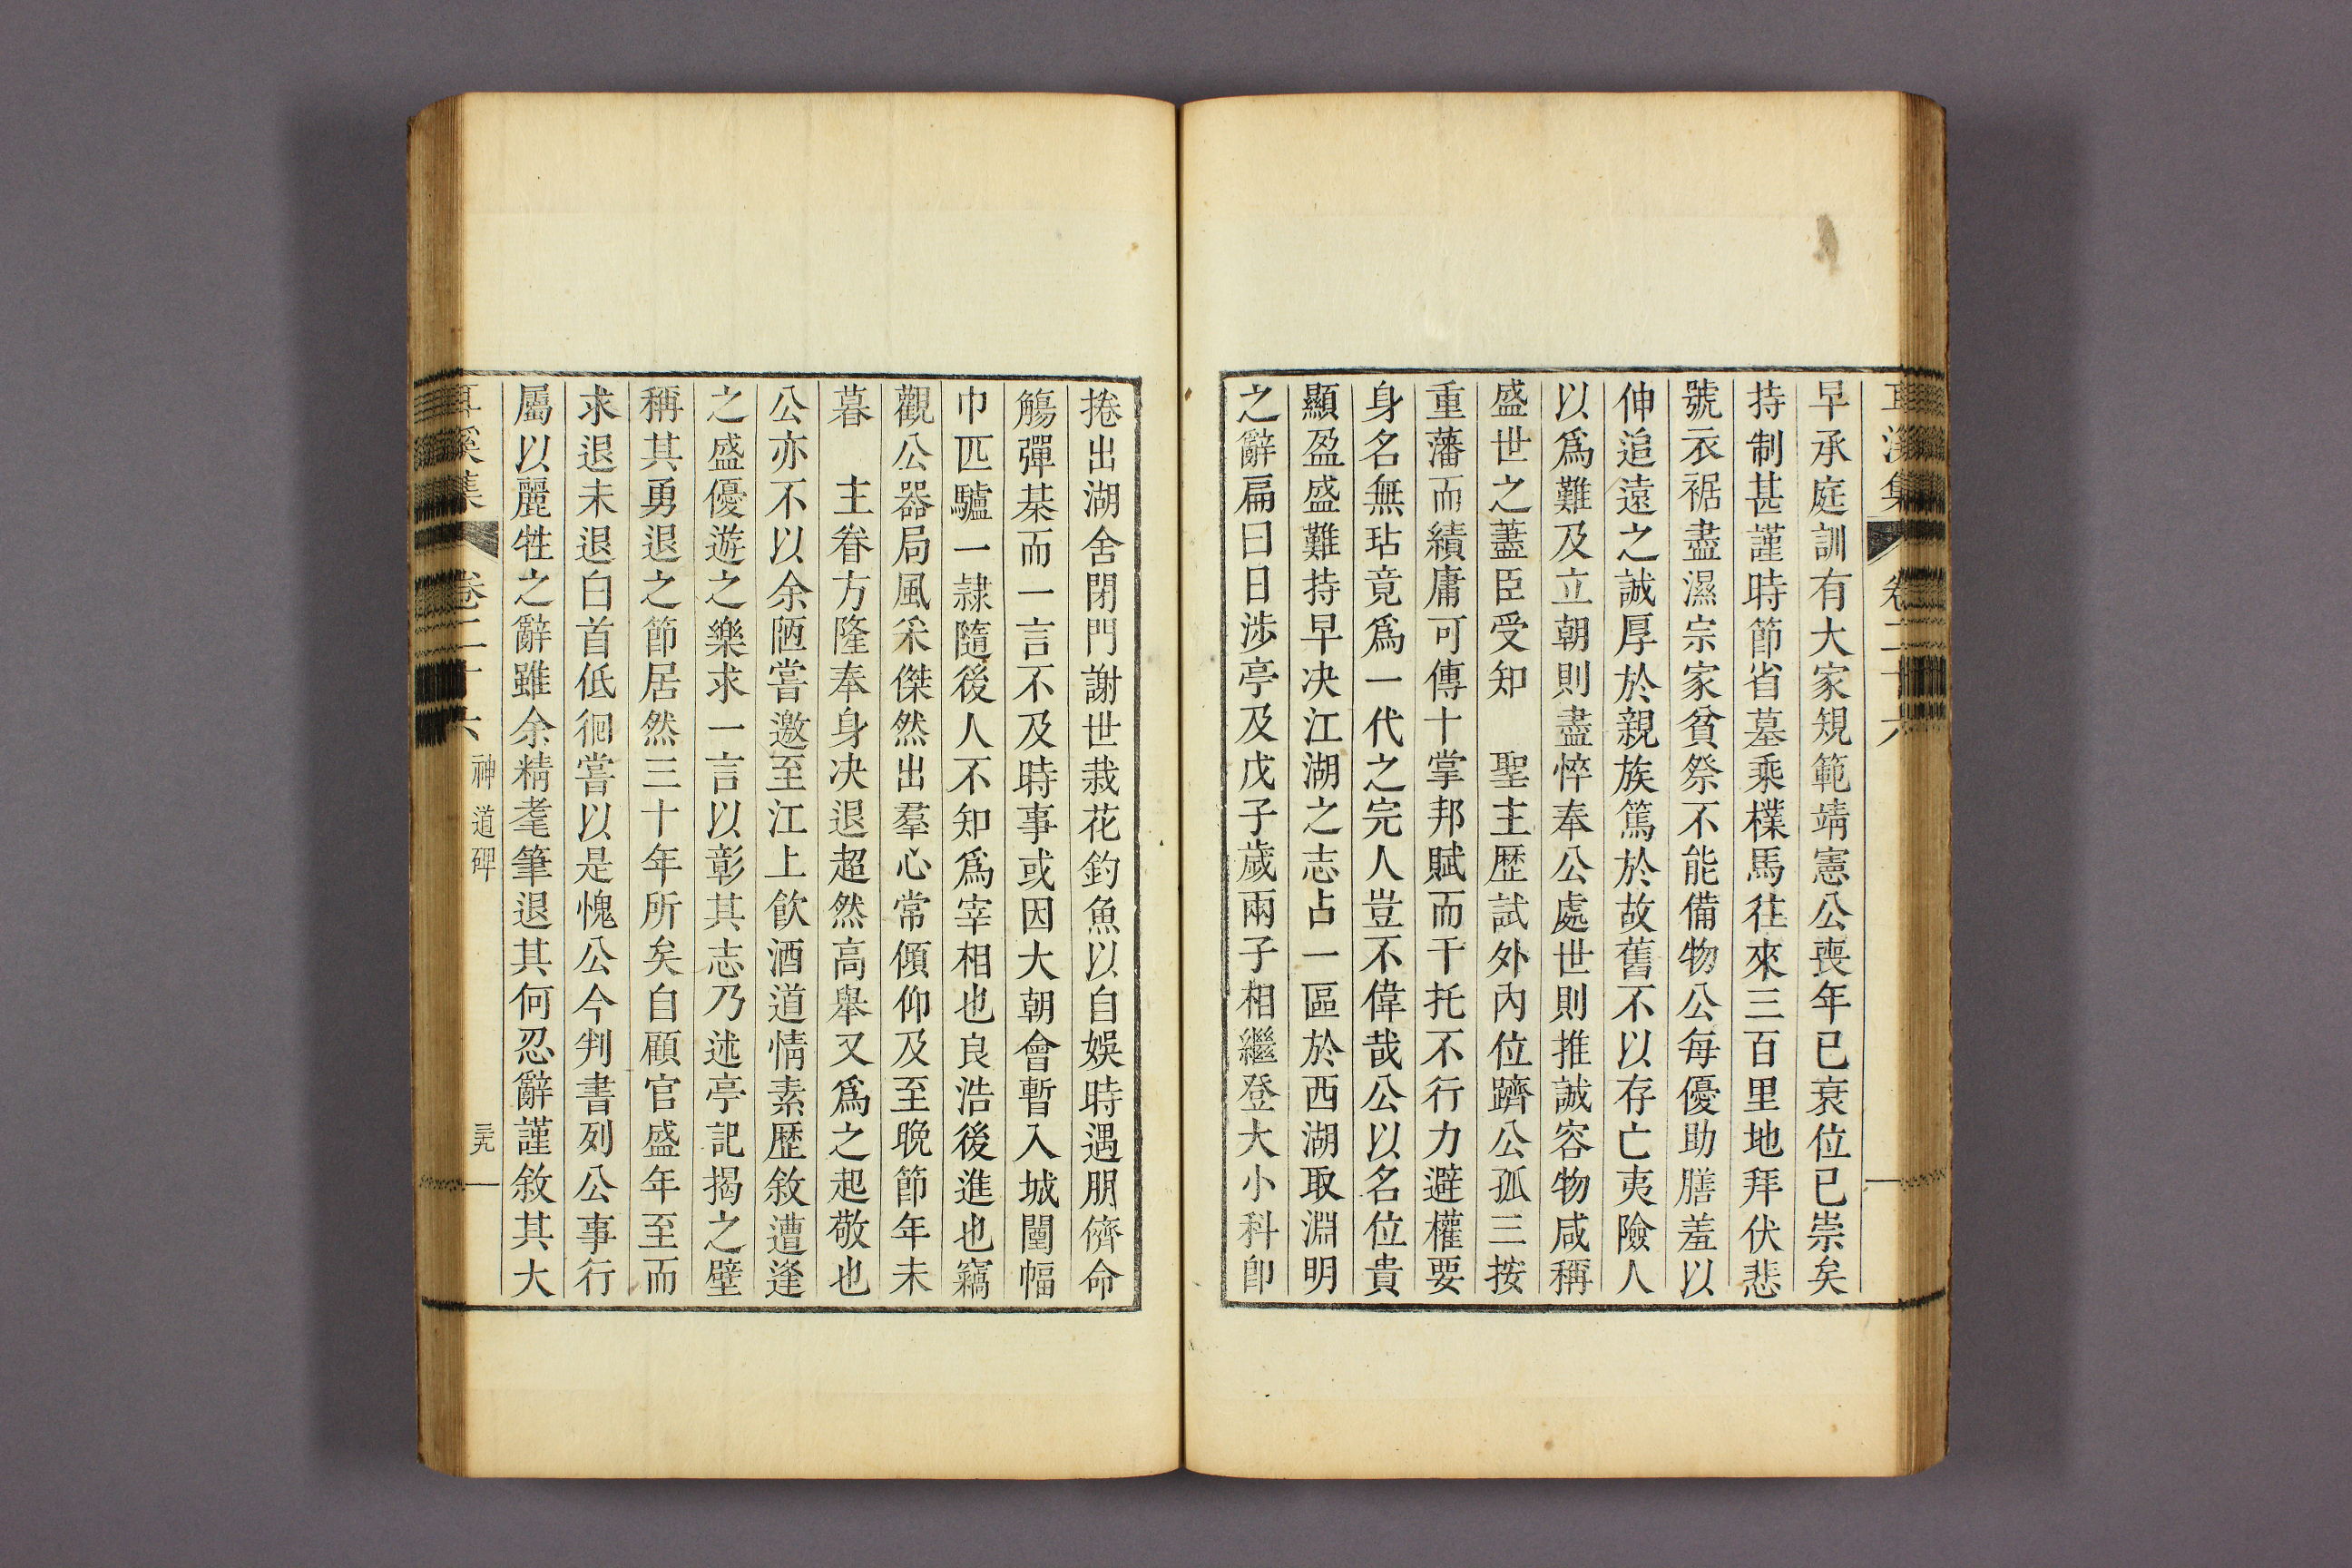 耳溪集 卷二十六
早承庭訓有大家規範靖憲公喪年已衰位已崇矣
持制甚謹時節省墓乘樸馬往來三百里地拜伏悲
號衣裾盡濕宗家貧祭不能備物公每優助膳羞以
伸追遠之誠厚於親族篤於故舊不以存亡夷險人
以爲難及立朝則盡悴奉公處世則推誠容物咸稱
盛世之藎臣受知　聖主歷試外內位躋公孤三按
重藩而績庸可傳十掌邦賦而干托不行力避權要
身名無玷竟爲一代之完人豈不偉哉公以名位貴
顯盈盛難持早决江湖之志占一區於西湖取淵明
之辭扁曰日涉亭及戊子歲兩子相繼登大小科卽
捲出湖舍閉門謝世栽花釣魚以自娛時遇朋儕命
觴彈棊而一言不及時事或因大朝會暫入城闉幅
巾匹驢一隷隨後人不知爲宰相也良浩後進也竊
觀公器局風釆傑然出羣心常傾仰及至晩節年未
暮　主眷方隆奉身决退超然高舉又爲之起敬也
公亦不以余陋嘗邀至江上飮酒道情素歷敘遭逢
之盛優遊之樂求一言以彰其志乃述亭記揭之壁
稱其勇退之節居然三十年所矣自顧官盛年至而
求退未退白首低徊嘗以是愧公今判書列公事行
屬以麗牲之辭雖余精耄筆退其何忍辭謹敘其大
耳溪集 卷二十六 神道碑 三九